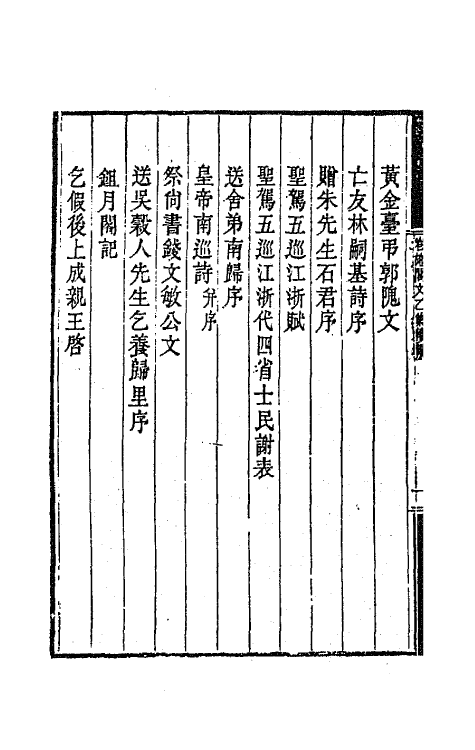 黃金臺弔郭隗文
亡友林嗣基詩序
贈朱先生石君序
聖駕五巡江浙賦
聖駕五巡江浙代四省士民謝表
送舍弟南歸序
皇帝南巡詩并序
祭尙書錢文敏公文
送吳穀人先生乞養歸里序
鉏月閣記
乞假後上成親王啓